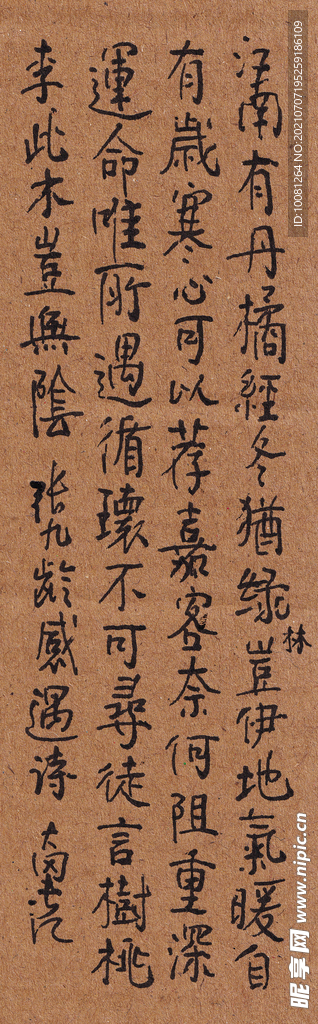 江南有丹橘經冬猶綠豈伊地氣暖自
林
有歲寒心可以荐嘉客奈何阻重深
運命唯所遇循環不可尋徒言樹桃
李此木豈無陰 張九齡感遇詩
ID:10081264 NO:20210707195259186109
昵享网 www.nipic.cn